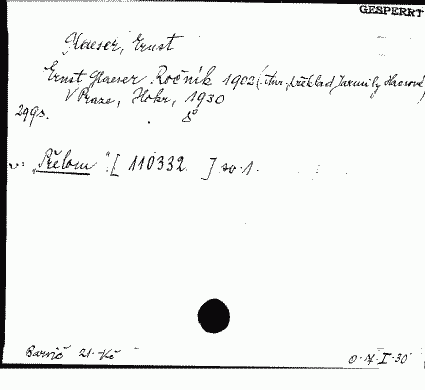 GESPERRT
Glaeser, Ernst
Ernst Glaeser. Ročník 1902 (. překlad Jarmily Haasové)
V Praze, Hokr, 1930
299s. 8°
v: "Přelom". [ 110332 ] sv. 1.
Barvič 21. Kč
I-30